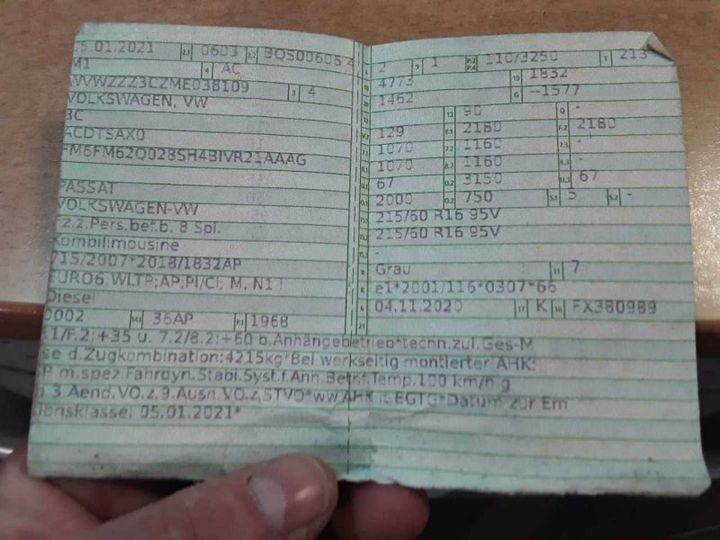 5.01.2021 2.1 0603 2.2 BQS00606 4
M1 4 AC
WVWZZZ3CZME038109 3 4
VOLKSWAGEN, VW
3C
ACDTSAX0
FM6FM62Q028SH4BIVR21AAAG
PASSAT
VOLKSWAGEN-VW
Fz.z.Pers.bef.b. 8 Spl.
Kombilimousine
715/2007*2018/1832AP
EURO6;WLTP;AP,PI/CI; M, N1 I
Diesel
0002 36AP P.1 1968
2 9 1 P.2 P.4 110/3250 T 213
4773 19 1832
1462 G --1577
13 90 Q -
129 F.1 2180 F.2 2180
1070 7.2 1160 7.3 -
1070 8.2 1160 8.3 -
67 U.2 3150 U.3 67
2000 O.2 750 S.1 5 S.2 -
215/60 R16 95V
215/60 R16 95V
-
Grau 11 7
e1*2001/116*0307*66
6 04.11.2020 17 K 16 FX380989
21
.1/F.2:+35 u. 7.2/8.2:+60 b.Anhängebetrieb*techn.zul.Ges-M
se d.Zugkombination:4215kg*Bei werkseitig montierter AHK:
P m.spez.Fahrdyn.Stabi.Syst.f.Anh.Betr.f.Temp.100 km/h g
3.Aend.VO.z.9.Ausn.VO.z.STVO*ww.AHK lt.EGTG*Datum zur Em
ionsklasse: 05.01.2021*